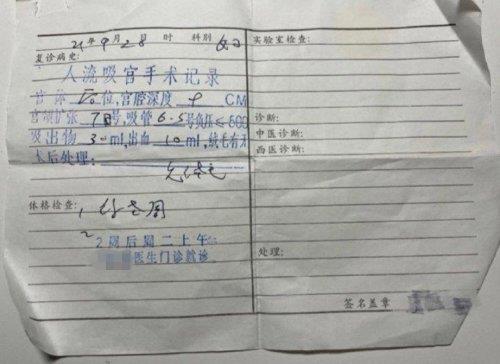 21年9月28 时 科别 妇
复诊病史:
人流吸宫手术记录
宫体 后 位,宫腔深度 9 CM
宫颈扩张 7 号,吸管 6.5 号负压≤500
吸出物 30 ml,出血 10 ml,绒毛有无
术后处理:
体格检查: 1,
2
2周后周二上午
医生门诊就诊
实验室检查:
诊断:
中医诊断:
西医诊断:
处理:
签名盖章